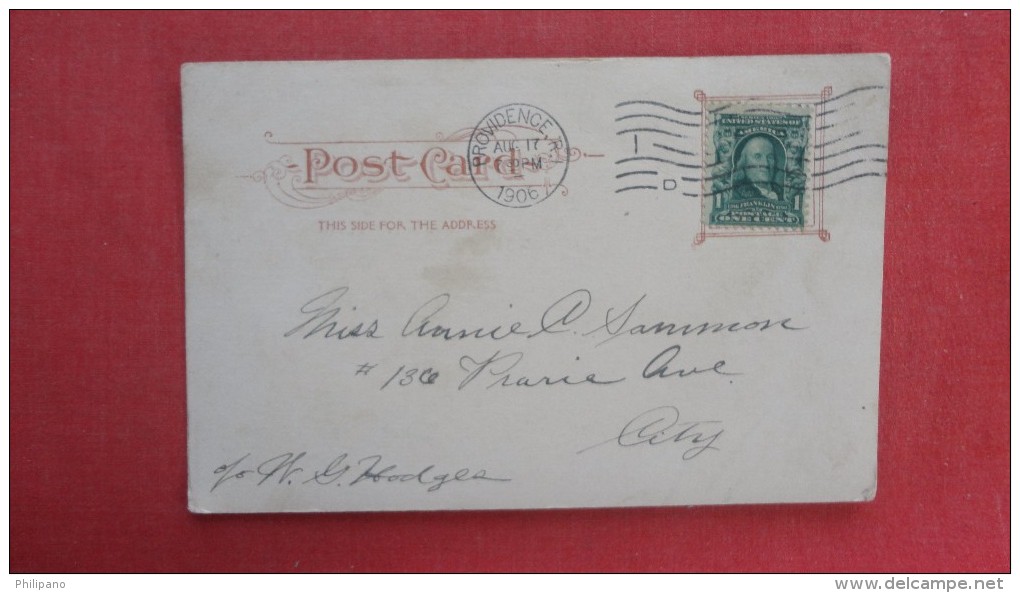 Post Card
THIS SIDE FOR THE ADDRESS
PROVIDENCE, R.I.
AUG 17
PM
1906
D
UNITED STATES OF
AMERICA
FRANKLIN
POSTAGE
1 ONE CENT 1
Miss Annie C. Sammon
# 136 Prarie Ave.
City
c/o W. G. Hodges
Philipano
www.delcampe.net